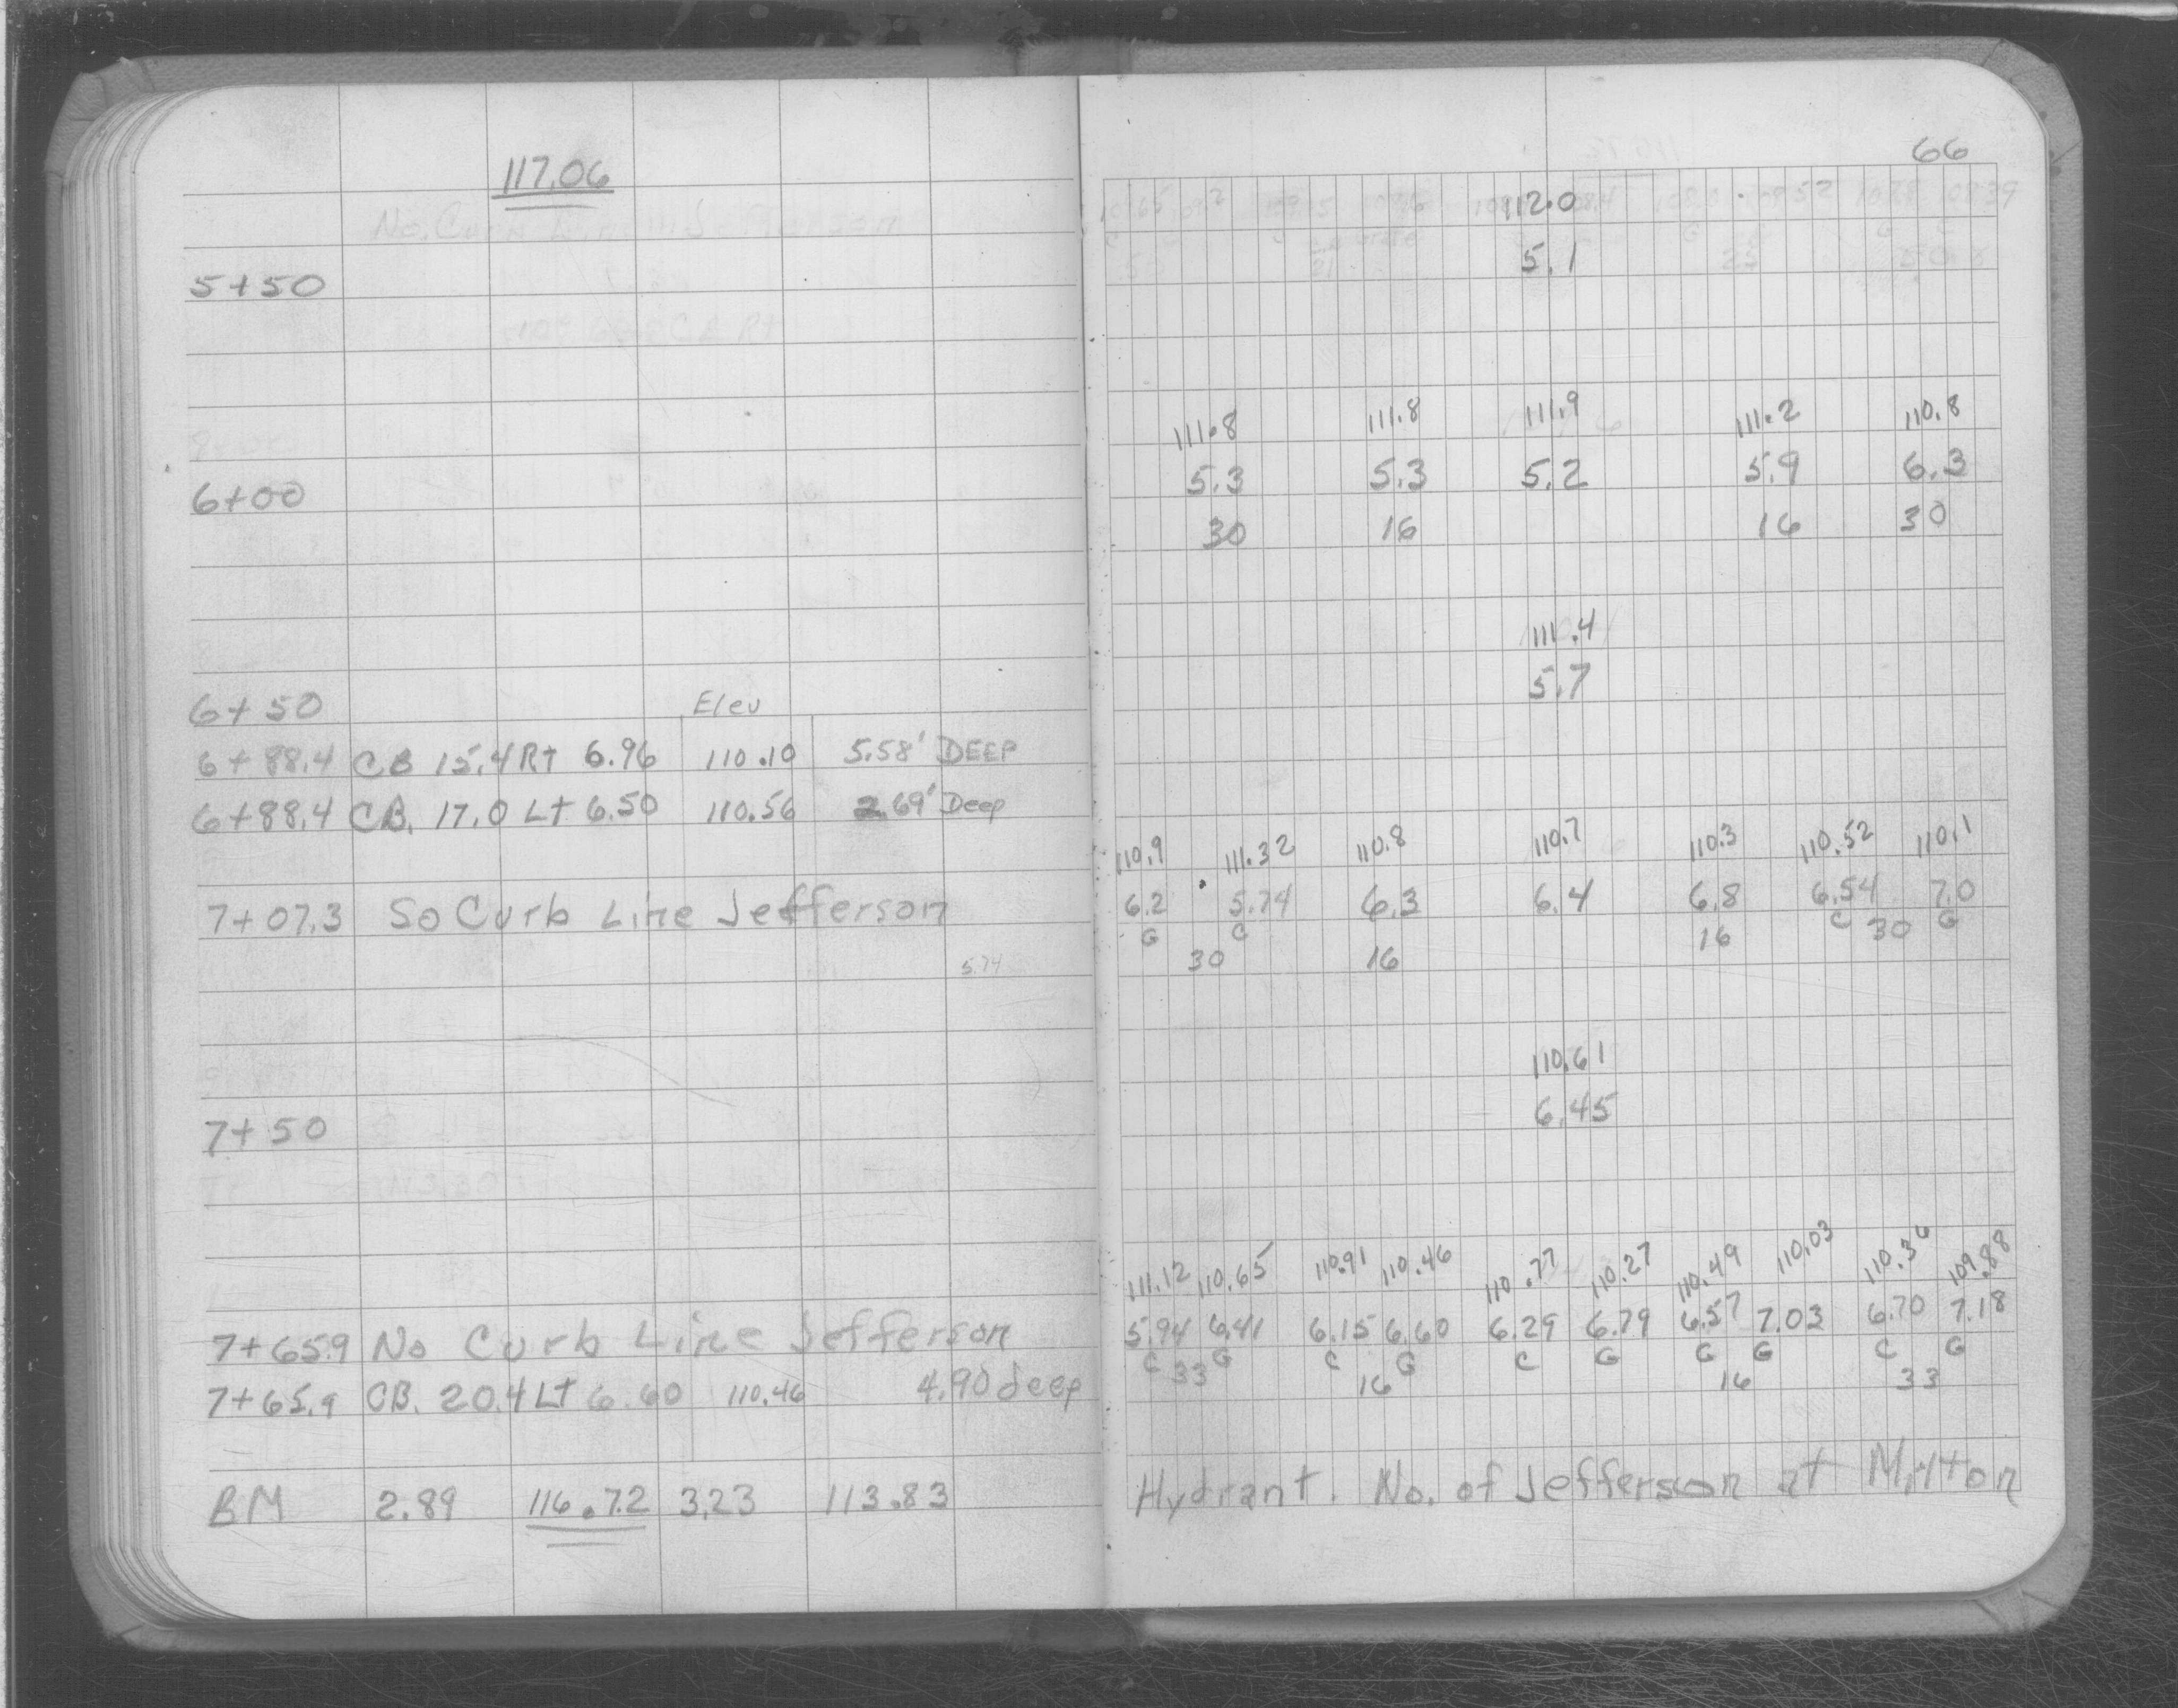 117.06
5+50
6+00
6+50 Elev
6+88.4 CB 15.4 Rt 6.96 110.10 5.58' DEEP
6+88.4 CB. 17.0 Lt 6.50 110.56 2.69' Deep
7+07.3 So Curb Line Jefferson
5.74
7+50
7+65.9 No Curb Line Jefferson
7+65.9 CB. 20.4 Lt 6.60 110.46 4.90 deep
BM 2.89 116.72 3.23 113.83
66
112.0
5.1
111.8 111.8 111.9 111.2 110.8
5.3 5.3 5.2 5.9 6.3
30 16 16 30
111.4
5.7
110.9 111.32 110.8 110.7 110.3 110.52 110.1
6.2 5.74 6.3 6.4 6.8 6.54 7.0
G C 16 C 30 G
30 16
110.61
6.45
111.12 110.65 110.91 110.46 110.77 110.27 110.49 110.03 110.36 109.88
5.94 6.41 6.15 6.60 6.29 6.79 6.57 7.03 6.70 7.18
C 33 G C G C G G G C G
16 16 33
Hydrant. No. of Jefferson at Milton